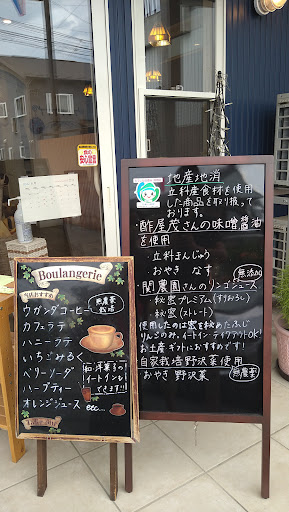 地産地消
立科産食材を使用
した商品を取り扱って
おります。
・酢屋茂さんの味噌醬油
を使用
・立科まんじゅう
・おやき なす
無添加
・関農園さんのリンゴジュース
・秘蜜プレミアム(すりおろし)
・秘蜜(ストレート)
使用したのは蜜を秘めたふじ
りんごのみ。イートイン・テイクアウトOK!
お土産・ギフトにおすすめです!
自家栽培野沢菜使用
おやき 野沢菜
無農薬
Boulangerie
今日のおすすめ
無農薬
栽培
ウガンダコーヒー
カフェラテ
ハニーラテ
いちごみるく
ベリーソーダ
ハーブティー
オレンジジュース
etc...
和・洋菓子の
イートインも
できます!!